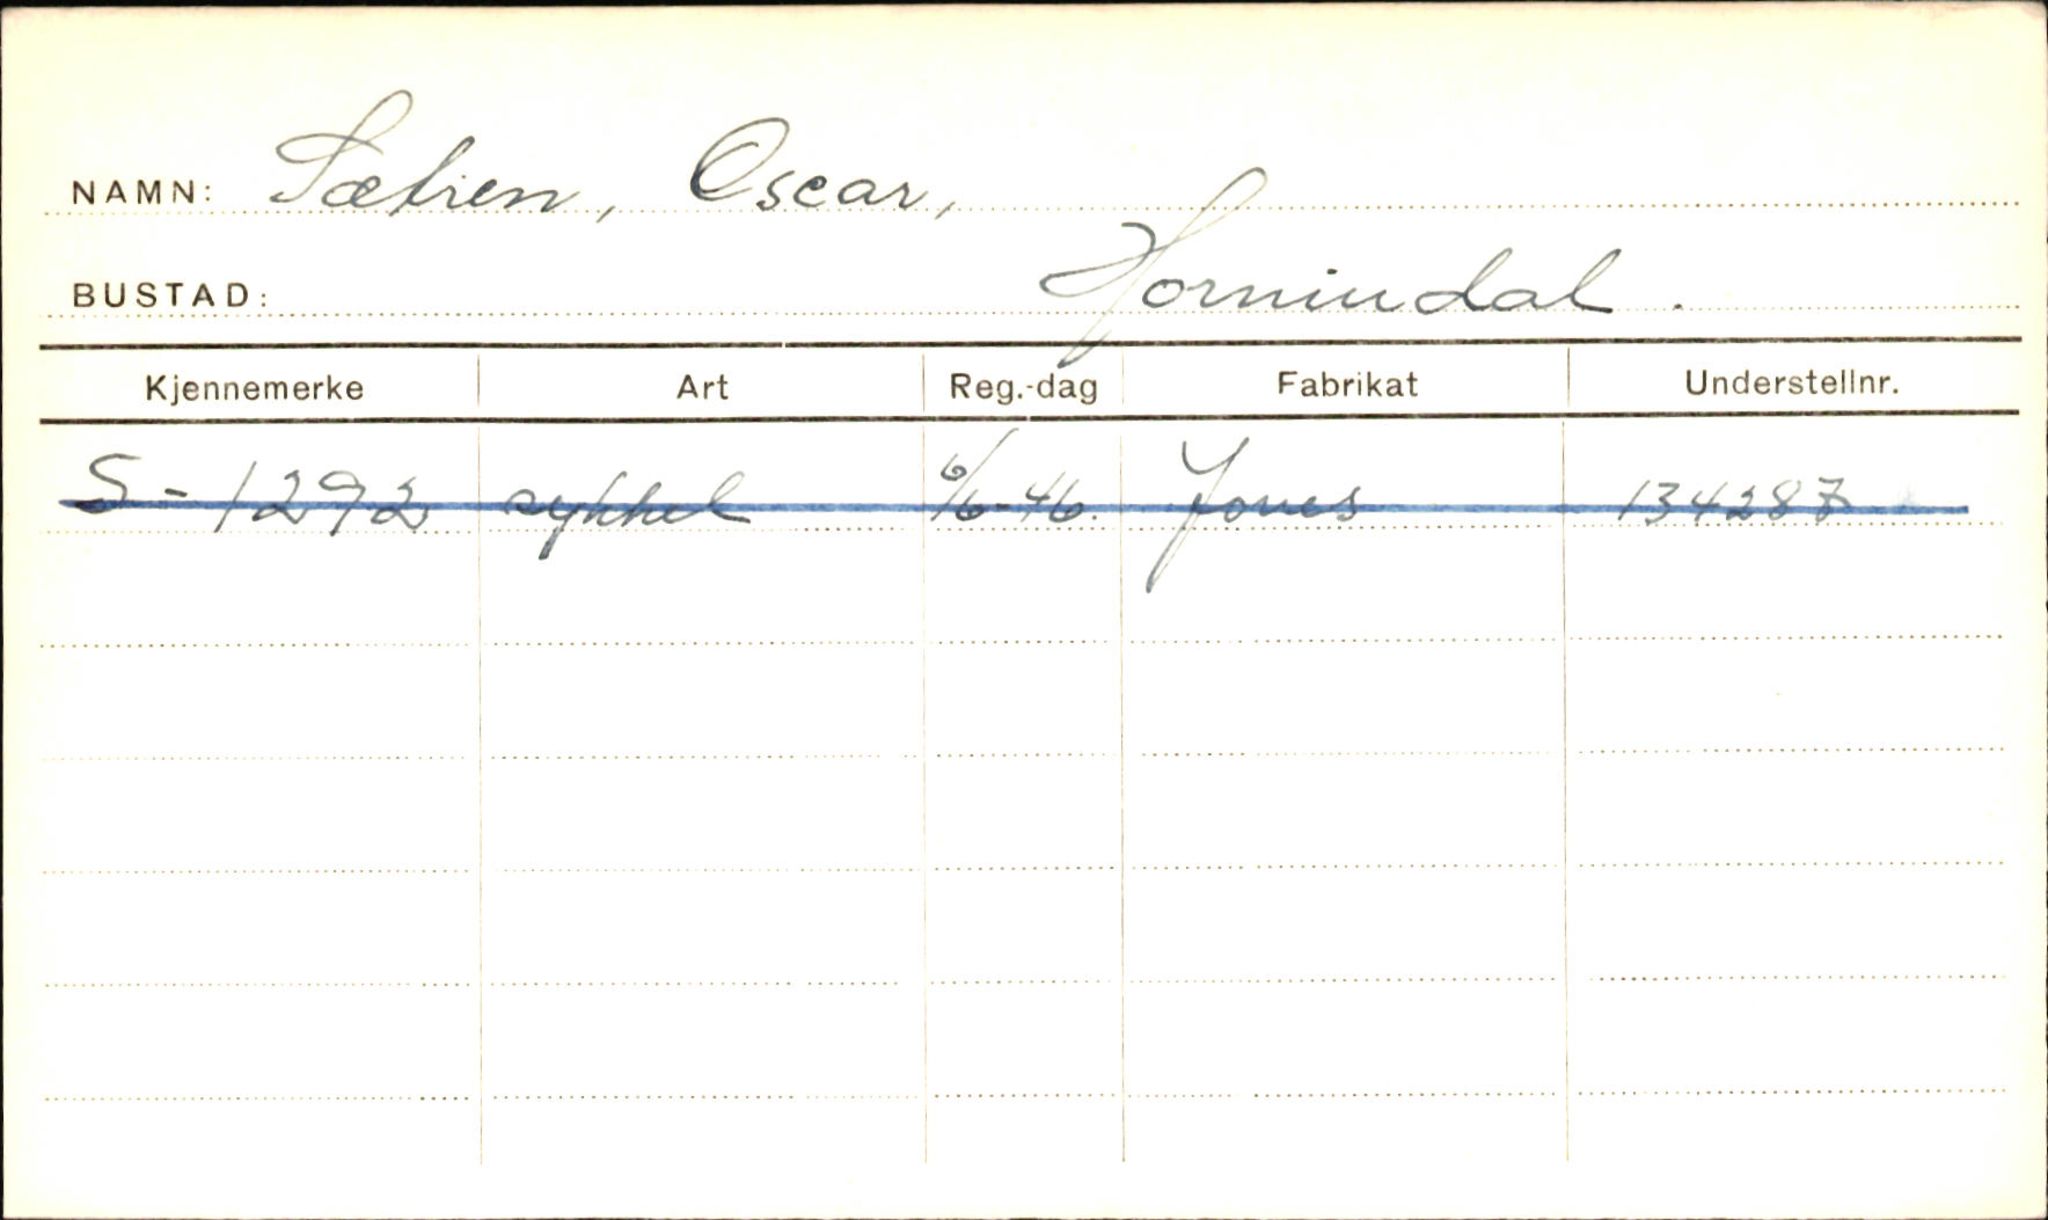 NAMN: Sætren, Oscar,
BUSTAD: Hornindal.
Kjennemerke Art Reg.-dag Fabrikat Understellnr.
S-1292 sykkel 6/6-46. Jones 134287